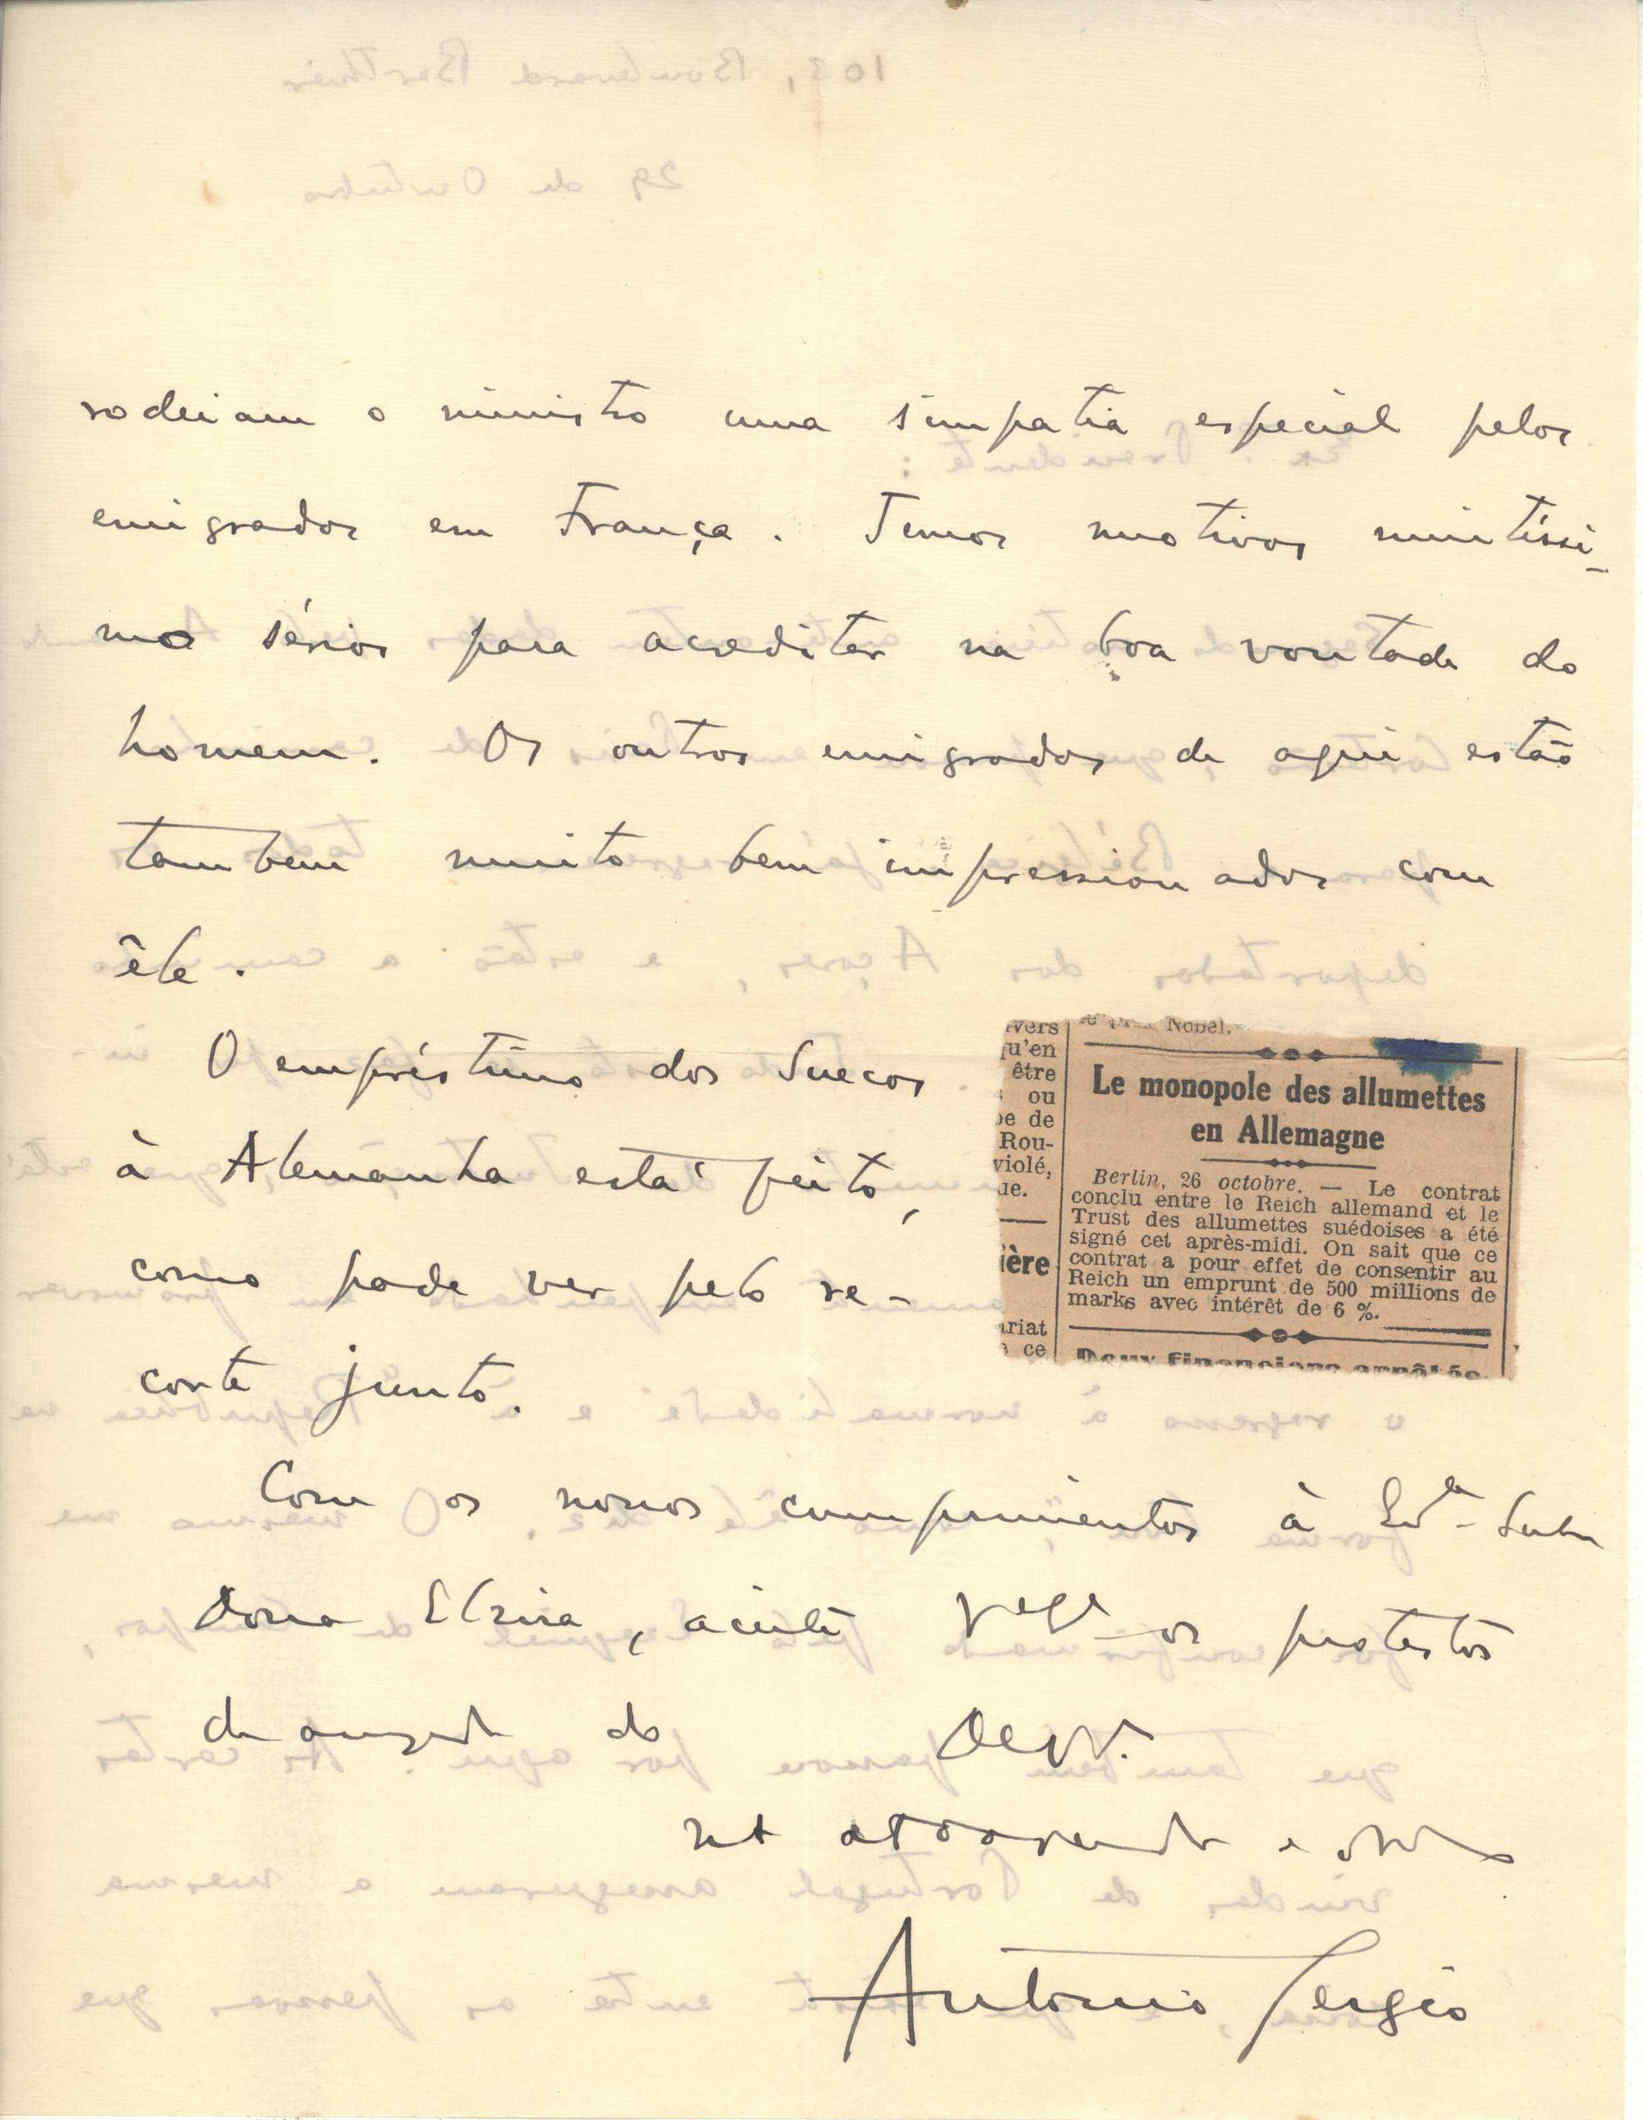 rodeiam o ministro uma simpatia especial pelos
emigrados em França. Temos motivos muitíssi-
mo sérios para acreditar na boa vontade do
homem. Os outros emigrados de aqui estão
tambem muito bem impressionados com
êle.
O empréstimo dos Suecos
à Alemanha está feito,
como pode ver pelo re-
corte junto.
Com os nossos cumprimentos à
Dona Elzira, aceite os protestos
de amizade do
Antonio Sergio
le prix Nobel.
Le monopole des allumettes
en Allemagne
Berlin, 26 octobre. — Le contrat
conclu entre le Reich allemand et le
Trust des allumettes suédoises a été
signé cet après-midi. On sait que ce
contrat a pour effet de consentir au
Reich un emprunt de 500 millions de
marks avec intérêt de 6 %.
Deux financiers arrêtés
vers
qu'en
être
ou
de
Rou-
violé,
ue.
ière
ariat
ce